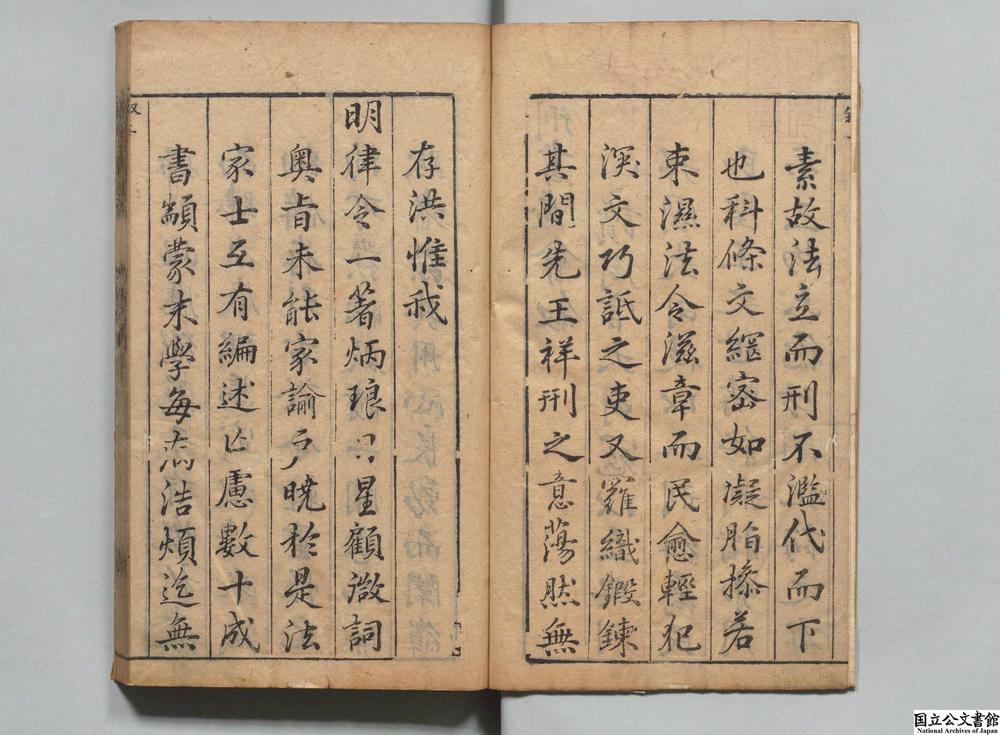 素故法立而刑不濫代而下
也科條文綱密如凝脂操若
束濕法令滋章而民愈輕犯
深文巧詆之吏又羅織鍛鍊
其間先王祥刑之意蕩然無
存洪惟我
明律令一著炳琅日星顧微詞
奧旨未能家諭戶曉於是法
家士互有編述亡慮數十成
書顓蒙末學每病浩煩迄無
国立公文書館
National Archives of Japan